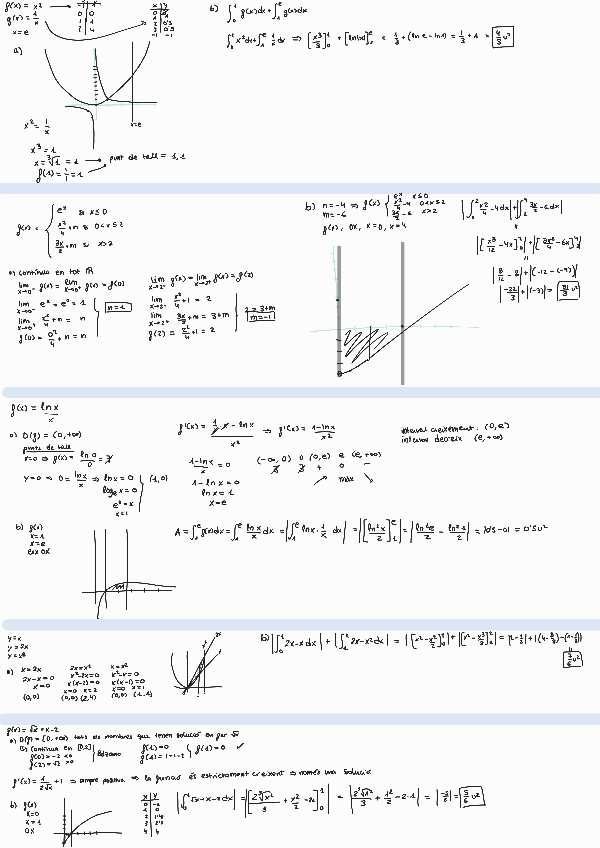 f(x) = x²
g(x) = 1/x
x=e
x y
0 0
1 1
2 4
a)
x=e
x² = 1/x
x³ = 1
x = ∛1 = 1 → punt de tall = 1,1
f(1) = 1/1 = 1
b) ∫₀¹ f(x)dx + ∫₁ᵉ g(x)dx
∫₀¹ x²dx + ∫₁ᵉ 1/x dx ⇒ [x³/3]₀¹ + [ln|x|]₁ᵉ = 1/3 + (ln e − ln 1) = 1/3 + 1 = 4/3 u²
f(x) = { eˣ si x≤0
x²/4 + n si 0<x≤2
3x/2 + m si x>2
a) Contínua en tot ℝ
lim x→0⁻ f(x) = lim x→0⁺ f(x) = f(0)
lim x→0⁻ eˣ = e⁰ = 1
lim x→0⁺ x²/4 + n = n
n=1
f(0) = 0²/4 + n = n
lim x→2⁻ f(x) = lim x→2⁺ f(x) = f(2)
lim x→2⁻ x²/4 + 1 = 2
lim x→2⁺ 3x/2 + m = 3+m
2 = 3+m
m=-1
f(2) = 2²/4 + 1 = 2
b) n=-4 ⇒ f(x) { eˣ x≤0
m=-6
x²/4 - 4 0<x≤2
3x/2 - 6 x>2
f(x), OX, x=0, x=4
|∫₀² x²/4 - 4dx| + |∫₂⁴ 3x/2 - 6dx|
|[x³/12 - 4x]₀²| + |[3x²/4 - 6x]₂⁴|
|8/12 - 8| + |-12 - (-9)|
|-22/3| + |(-3)| = 31/3 u²
f(x) = ln x / x
a) D(f) = (0,+∞)
punts de tall
x=0 ⇒ f(x) = ln 0 / 0 = ∄
y=0 ⇒ 0 = ln x / x ⇒ ln x = 0
(1,0)
logₑ x = 0
e⁰ = x
x=1
f'(x) = (1/x · x - ln x) / x² ⇒ f'(x) = (1 - ln x) / x²
1 - ln x = 0
ln x = 1
x=e
(-∞,0) 0 (0,e) e (e,+∞)
∄ ∄ + 0 -
↗ màx ↘
interval creixement: (0,e)
interval decreix (e,+∞)
b) f(x)
x=1
x=e
eix OX
A = ∫₁ᵉ f(x)dx = ∫₁ᵉ ln x / x dx = |∫₁ᵉ ln x · 1/x dx| = |[ln²x / 2]₁ᵉ| = |ln²e / 2 - ln²1 / 2| = |0'5 - 0| = 0'5u²
y=x
y=2x
y=x²
a) x=2x
2x-x=0
x=0
(0,0)
2x=x²
x²-2x=0
x(x-2)=0
x=0 x=2
(0,0) (2,4)
x=x²
x²-x=0
x(x-1)=0
x=0 x=1
(0,0) (1,1)
b) |∫₀¹ 2x-x dx| + |∫₁² 2x-x² dx| = |[x² - x²/2]₀¹| + |[x² - x³/3]₁²|
f(x) = √x + x - 2
a) D(f) = [0,+∞) tots els nombres que tenen solució en fer √x
f(0) = -2 <0
f(2) = √2 >0
Bolzano
f(1)=0
f(1) = 1+1-2
f(1)=0 ✓
f'(x) = 1/(2√x) + 1 ⇒ sempre positiva ⇒ la funció és estrictament creixent ⇒ només una solució
b) f(x)
x=0
x=1
OX
x y
0 -2
1 0
4 4
|∫₀¹ √x + x - 2 dx| = |[2√x³/3 + x²/2 - 2x]₀¹| = |2√1³/3 + 1²/2 - 2·1| = |-5/6| = 5/6 u²